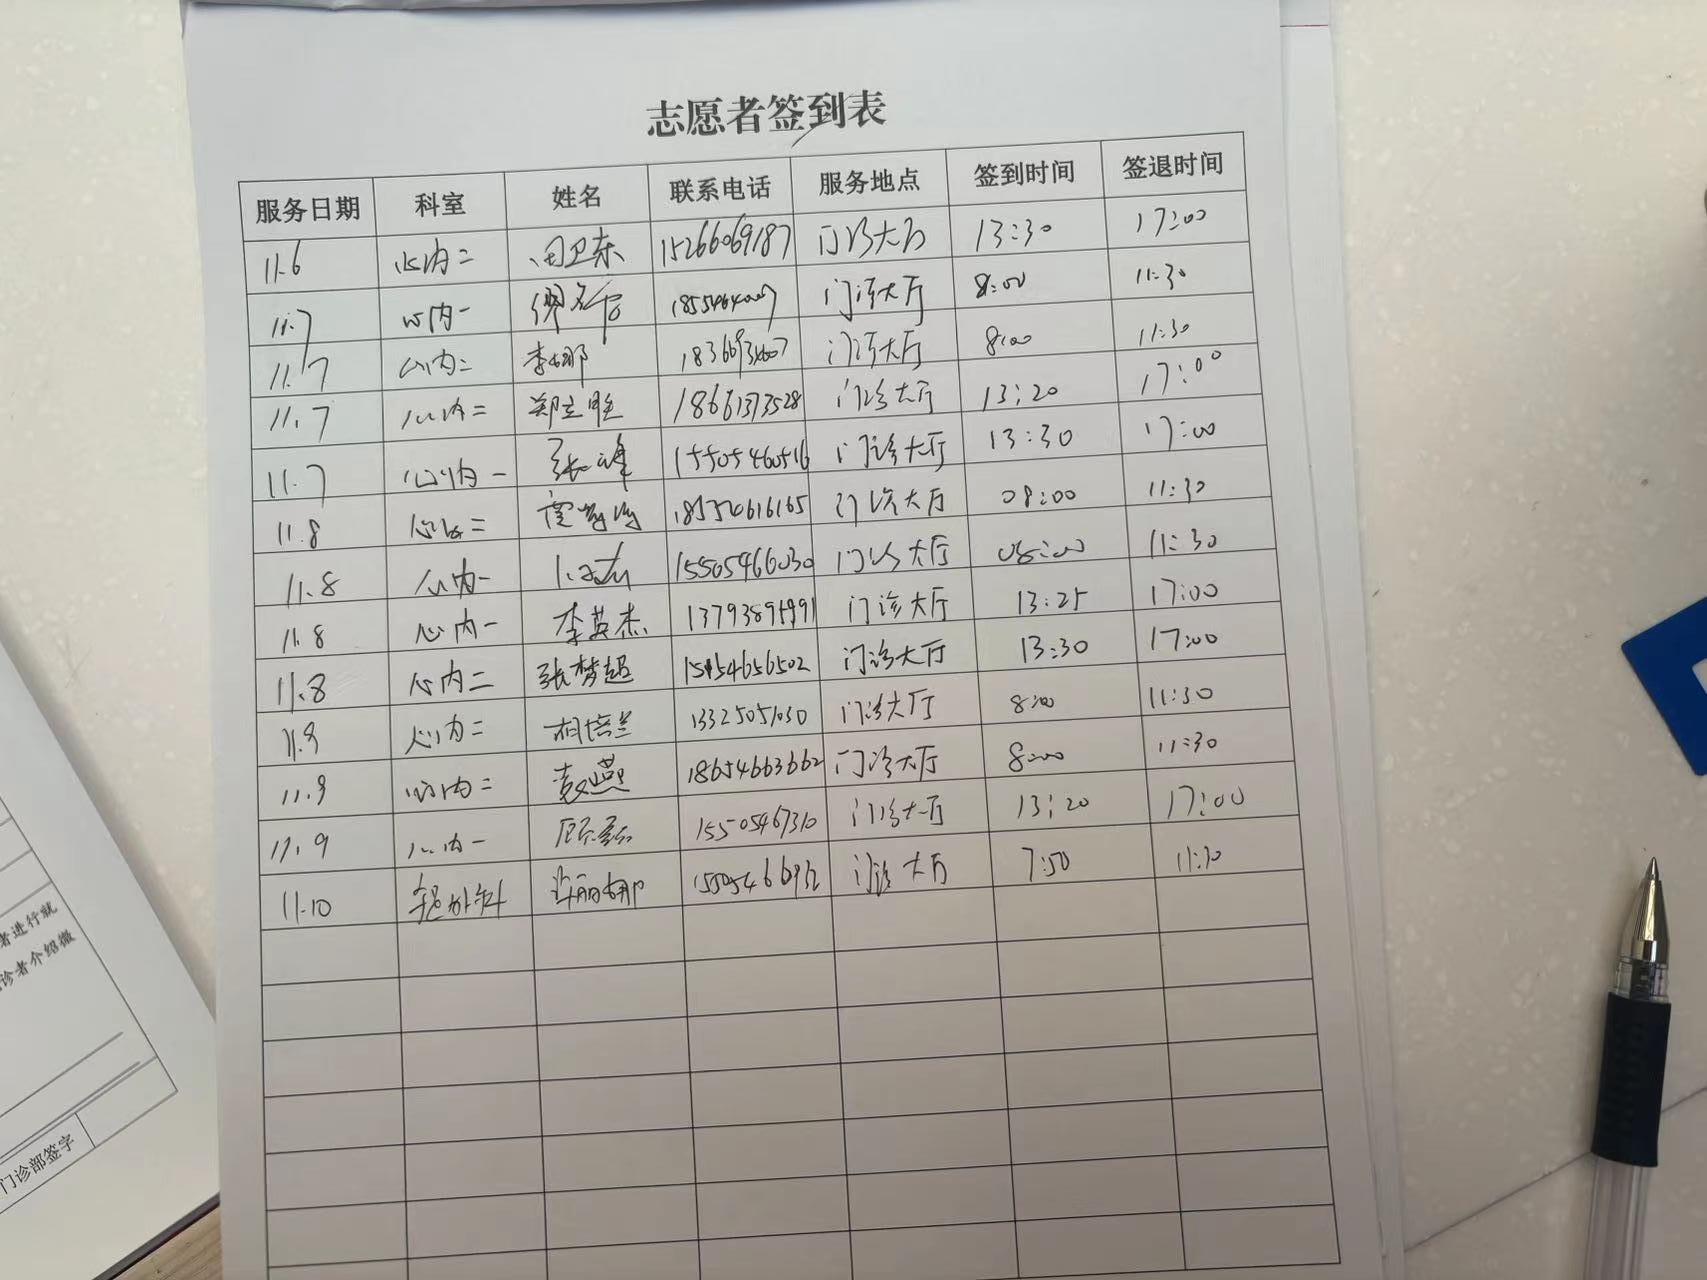 志愿者签到表
服务日期 科室 姓名 联系电话 服务地点 签到时间 签退时间
11.6 心内二 田卫东 15266069187 门诊大厅 13:30 17:00
11.7 心内一 门诊大厅 8:00 11:30
11.7 心内二 李娜 门诊大厅 8:00 11:30
11.7 心内二 郑立胜 18661373528 门诊大厅 13:20 17:00
11.7 心内一 张峰 15505460516 门诊大厅 13:30 17:00
11.8 心内二 18554616165 门诊大厅 08:00 11:30
11.8 心内一 15505466030 门诊大厅 08:00 11:30
11.8 心内一 李英杰 门诊大厅 13:25 17:00
11.8 心内二 张梦超 15954656502 门诊大厅 13:30 17:00
11.9 心内二 相培兰 13325051030 门诊大厅 8:00 11:30
11.9 心内二 袁燕 18654663662 门诊大厅 8:00 11:30
11.9 心内一 15505467310 门诊大厅 13:20 17:00
11.10 门诊大厅 7:50 11:30
者进行就
诊者介绍微
门诊部签字